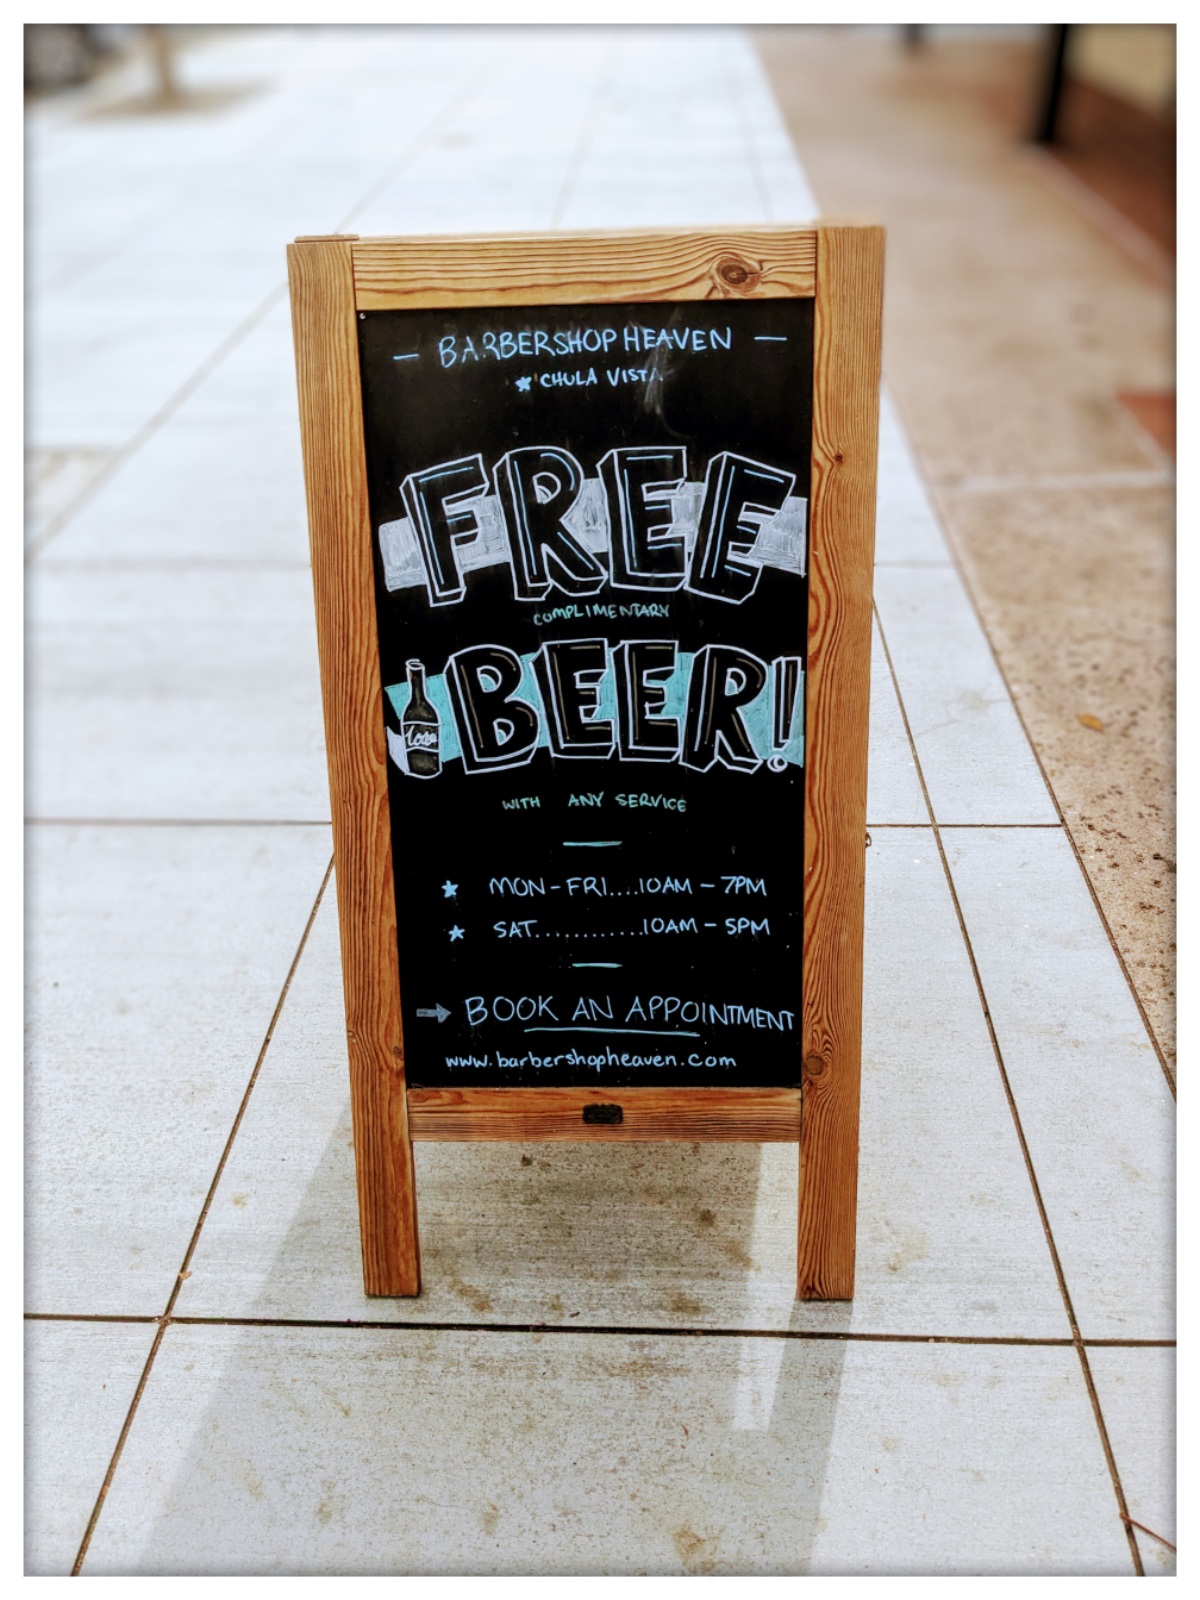 — BARBERSHOP HEAVEN —
★ CHULA VISTA
FREE
COMPLIMENTARY
BEER!
WITH ANY SERVICE
★ MON-FRI....10AM - 7PM
★ SAT............10AM - 5PM
→ BOOK AN APPOINTMENT
www.barbershopheaven.com